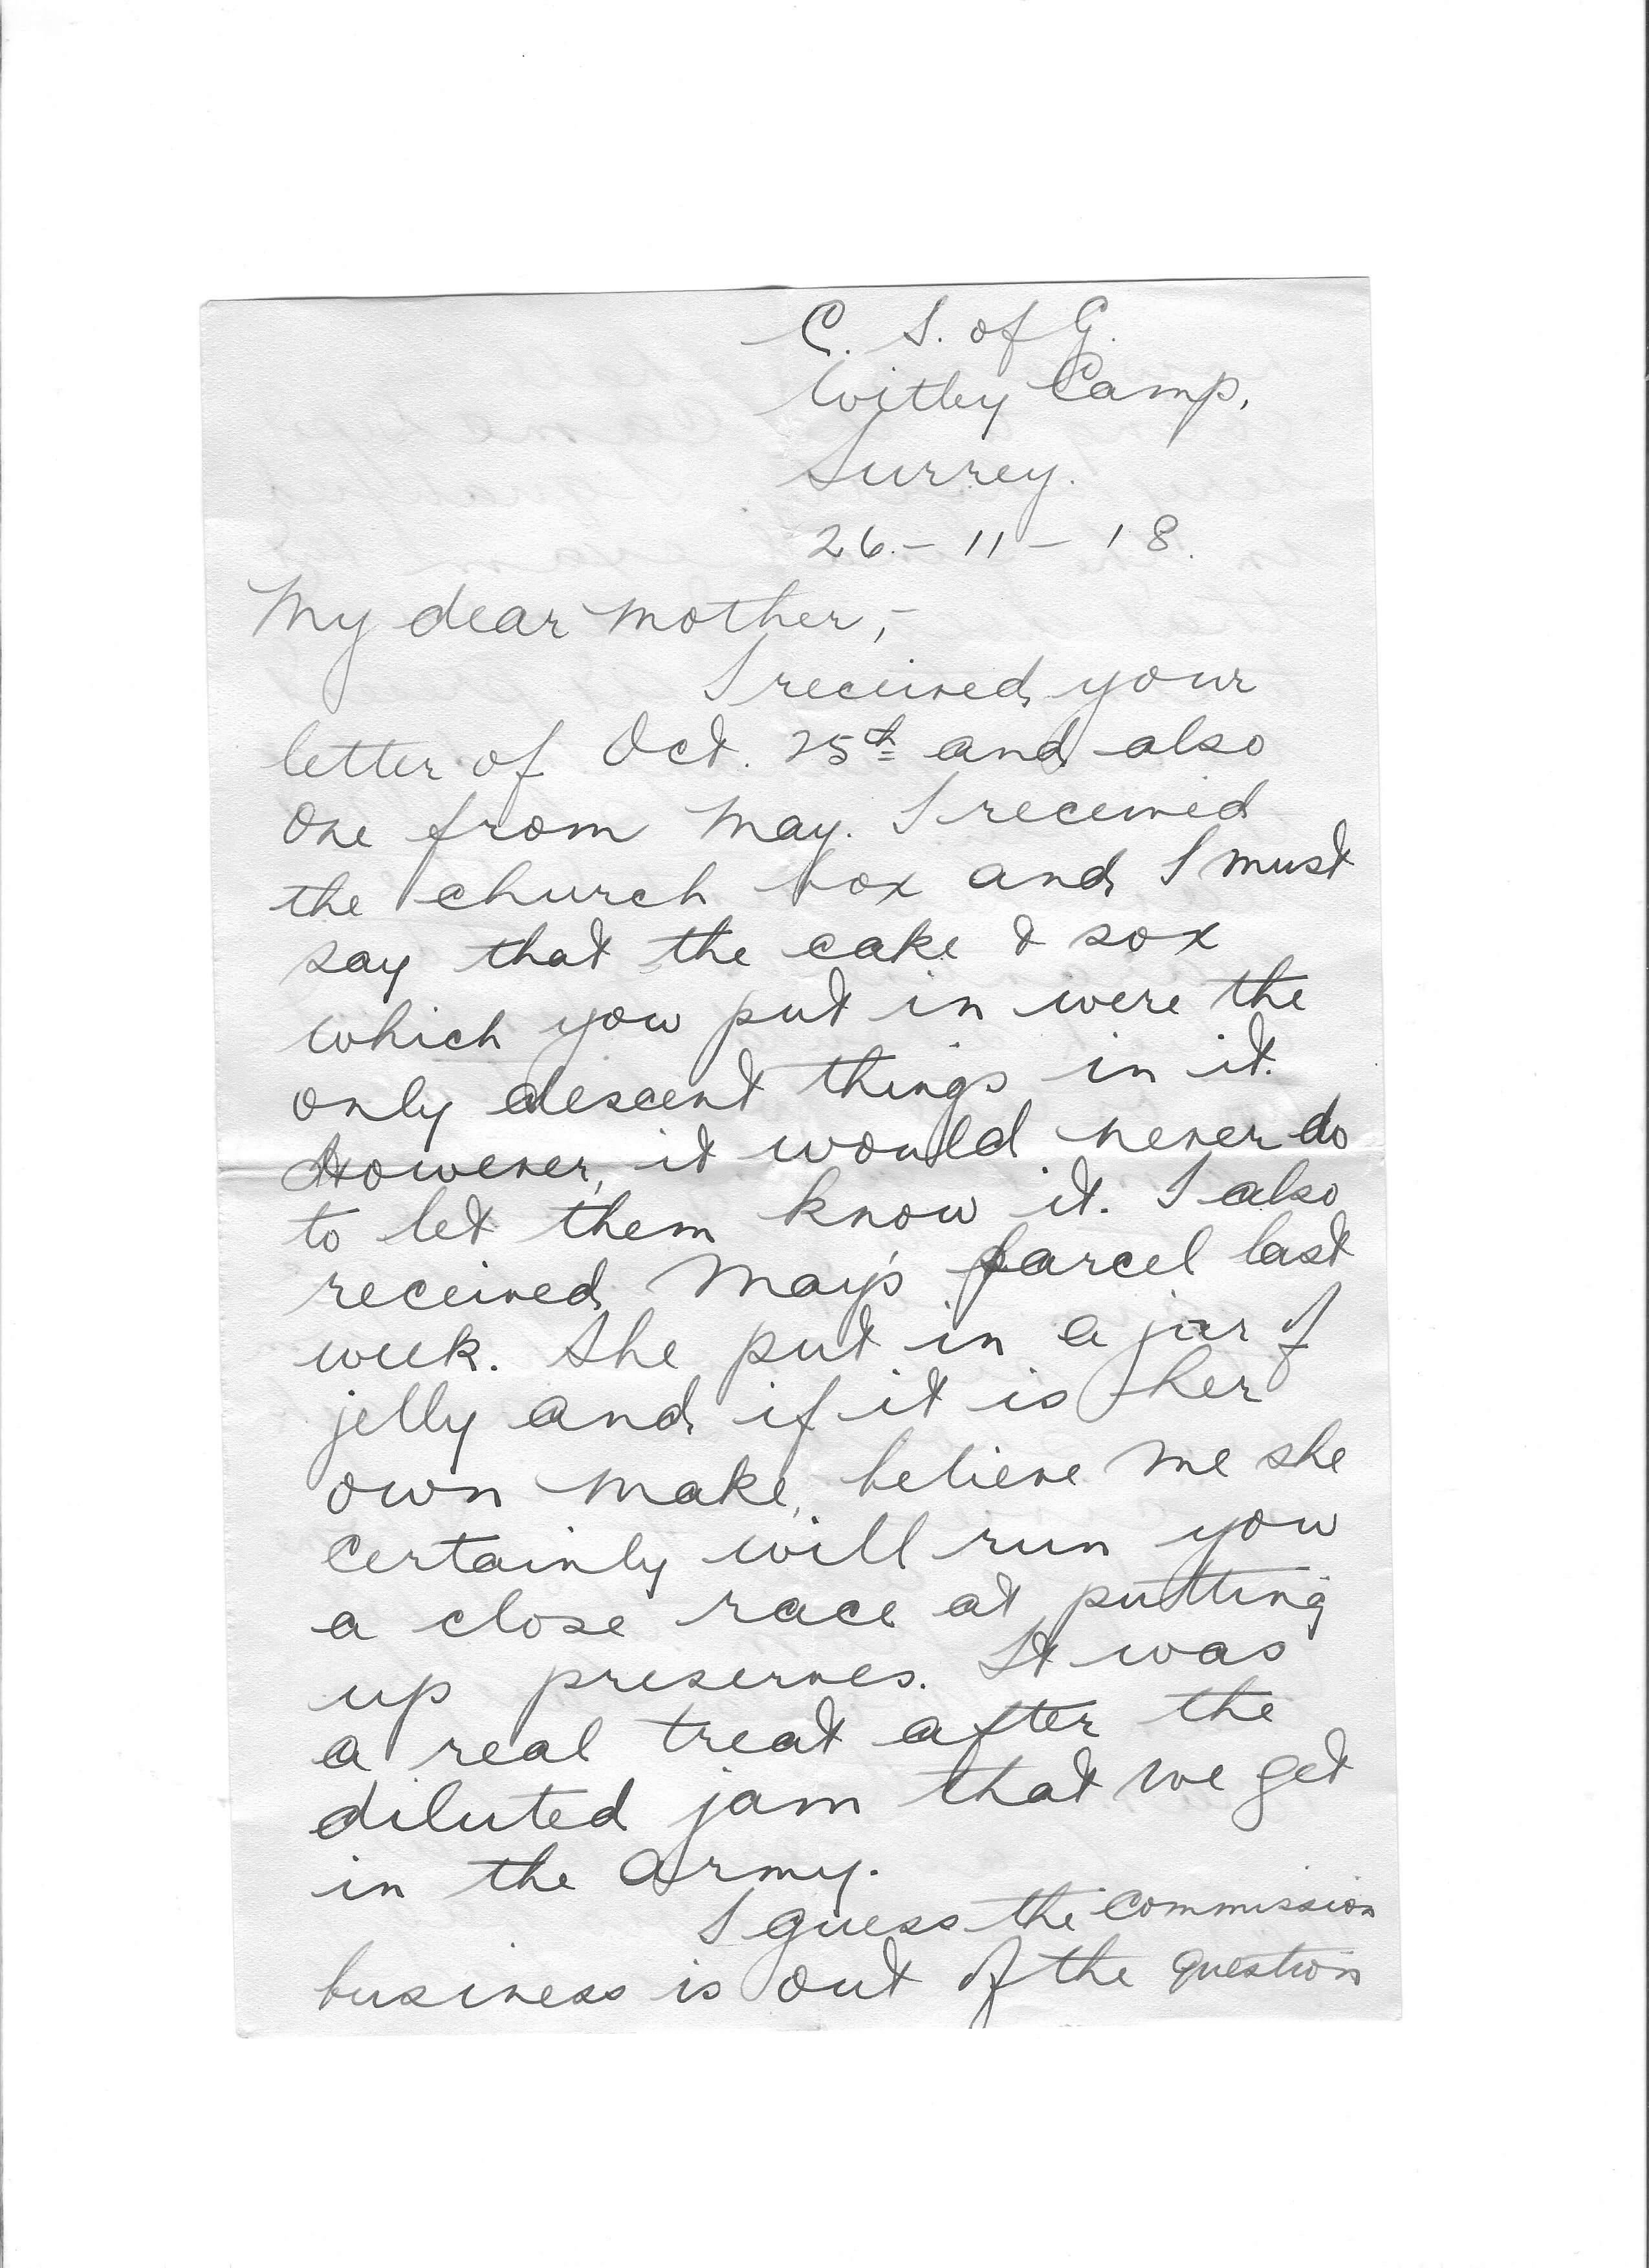 C. S. of G.
Witley Camp,
Surrey.
26.-11-18.
My dear mother,-
I received your
letter of Oct. 25th and also
one from May. I received
the church box and I must
say that the cake & sox
which you put in were the
only descent things in it.
However, it would never do
to let them know it. I also
received May's parcel last
week. She put in a jar of
jelly and if it is her
own make, believe me she
certainly will run you
a close race at putting
up preserves. It was
a real treat after the
diluted jam that we get
in the army.
I guess the commission
business is out of the question